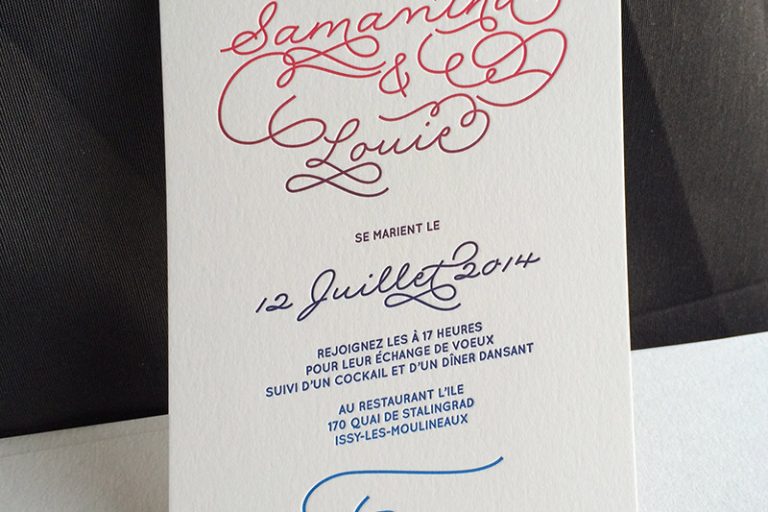 Samantha
&
Louie
SE MARIENT LE
12 Juillet 2014
REJOIGNEZ LES À 17 HEURES
POUR LEUR ÉCHANGE DE VOEUX
SUIVI D'UN COCKAIL ET D'UN DÎNER DANSANT
AU RESTAURANT L'ILE
170 QUAI DE STALINGRAD
ISSY-LES-MOULINEAUX